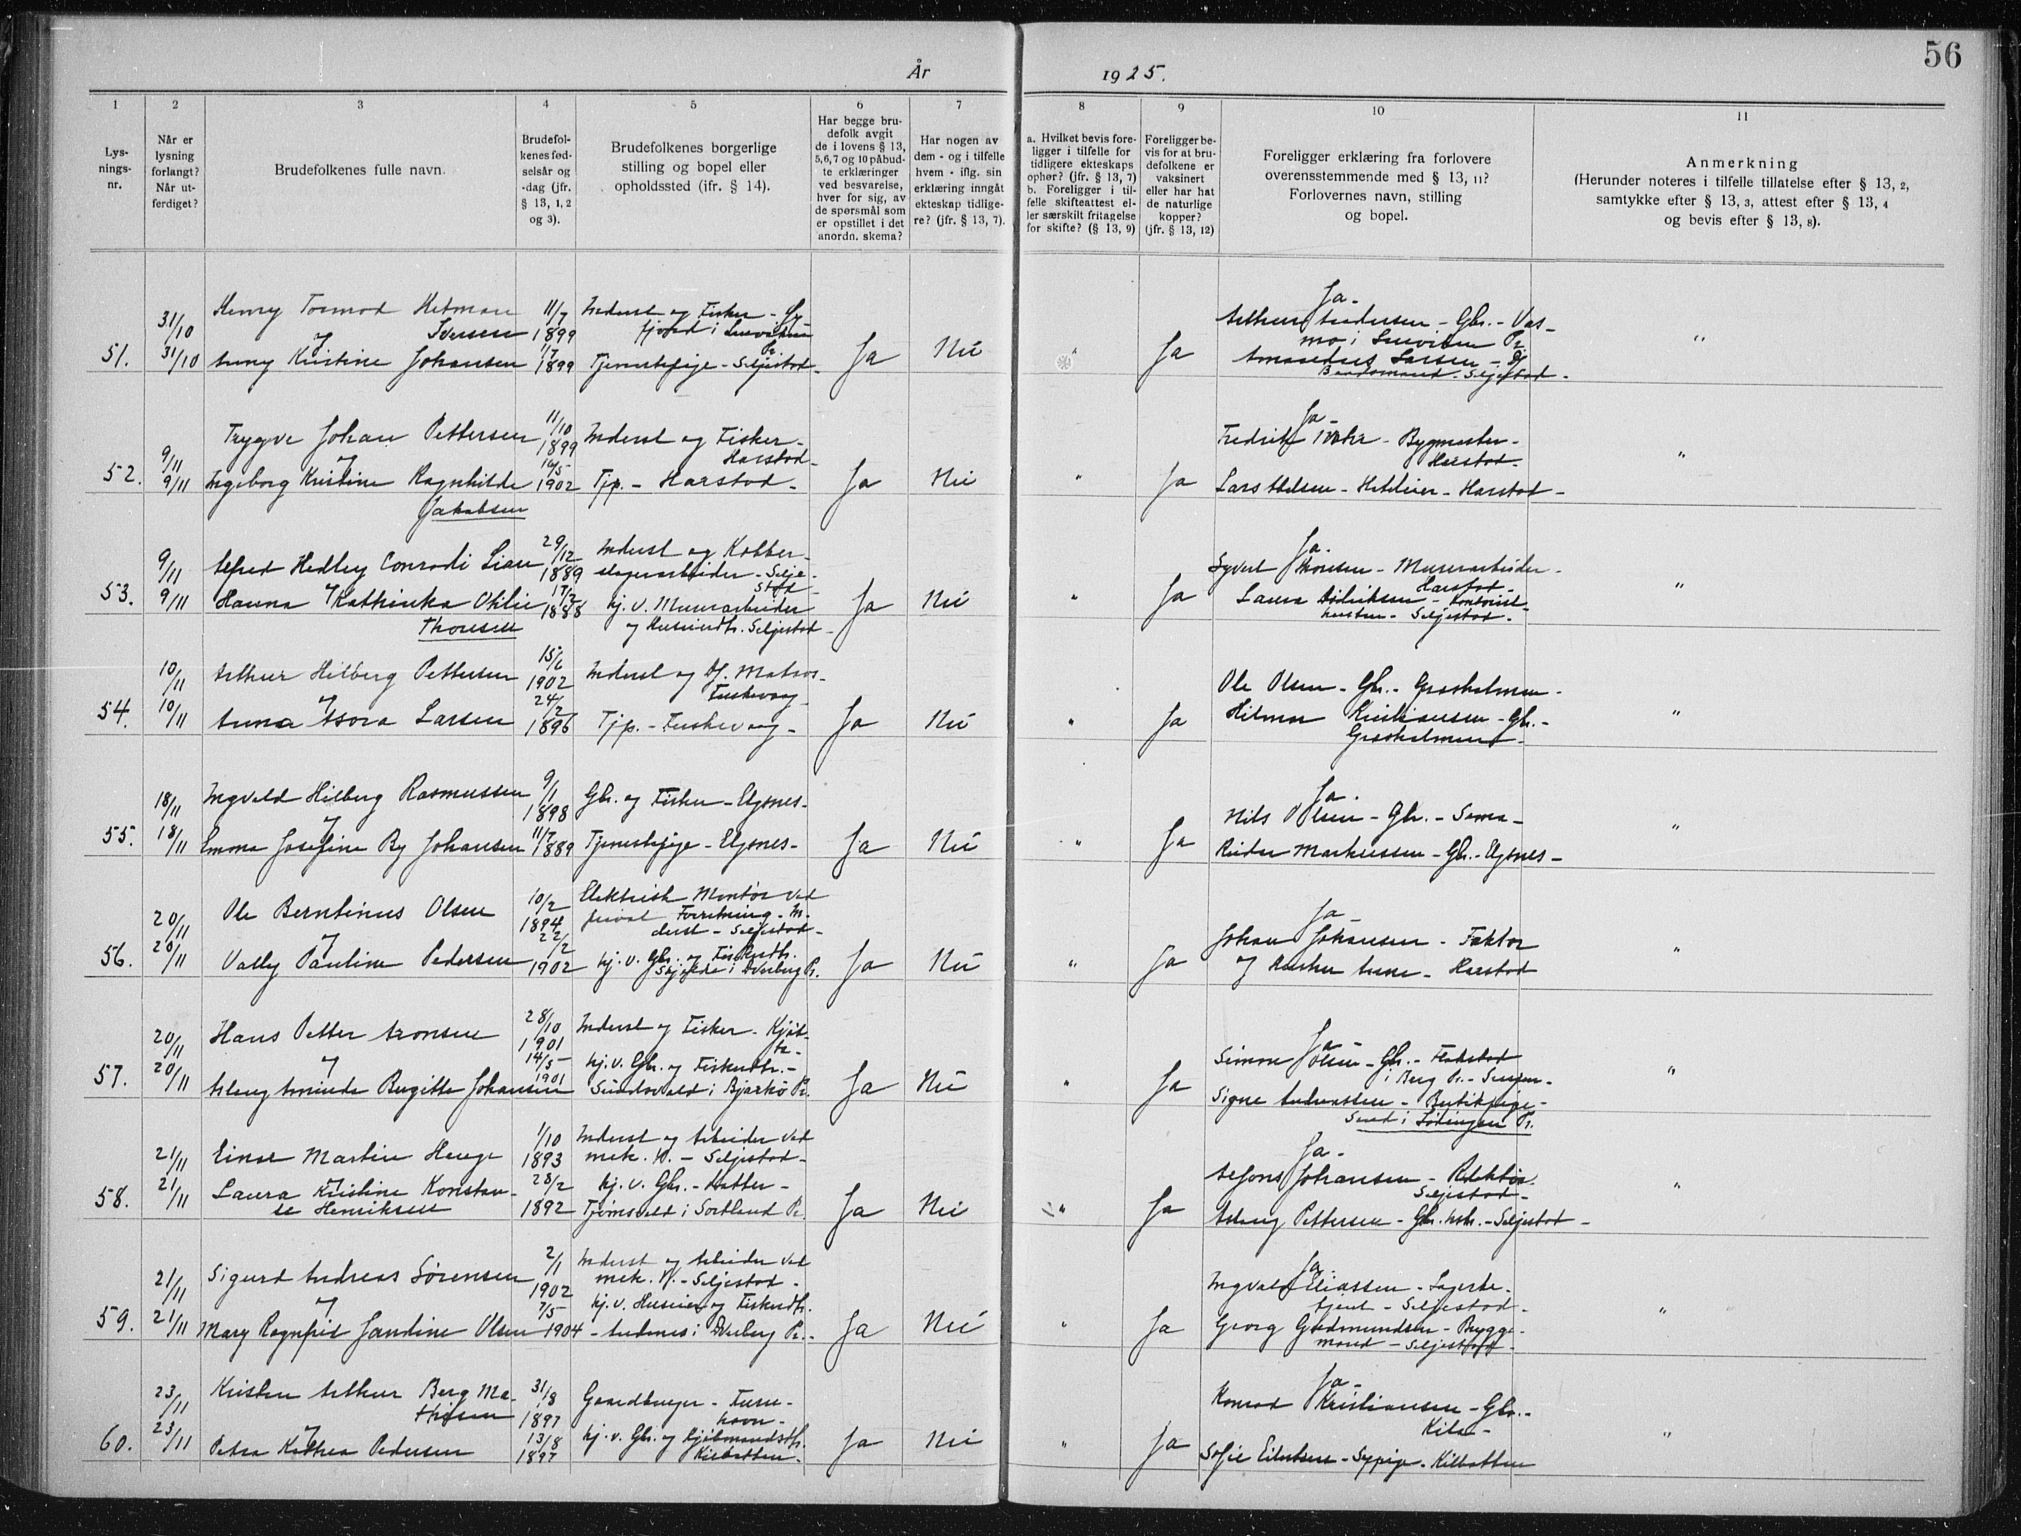 56
År 1925.
1 2 3 4 5 6 7 8 9 10 11
Lys-
nings-
nr.
Når er
lysning
forlangt?
Når ut-
ferdiget?
Brudefolkenes fulle navn.
Brudefol-
kenes fød-
selsår og
-dag (jfr.
§ 13, 1, 2
og 3).
Brudefolkenes borgerlige
stilling og bopel eller
opholdssted (ifr. § 14).
Har begge bru-
defolk avgit
de i lovens § 13,
5,6,7 og 10 påbud-
te erklæringer
ved besvarelse,
hver for sig, av
de spørsmål som
er opstillet i det
anordn. skema?
Har nogen av
dem - og i tilfelle
hvem - iflg. sin
erklæring inngåt
ekteskap tidlige-
re? (jfr. § 13, 7).
a. Hvilket bevis fore-
ligger i tilfelle for
tidligere ekteskaps
ophør? (jfr. § 13, 7)
b. Foreligger i til-
felle skifteattest el-
ler særskilt fritagelse
for skifte? (§ 13, 9)
Foreligger be-
vis for at bru-
defolkene er
vaksinert
eller har hat
de naturlige
kopper?
(jfr. § 13, 12)
Foreligger erklæring fra forlovere
overensstemmende med § 13, 11?
Forlovernes navn, stilling
og bopel.
Anmerkning
(Herunder noteres i tilfelle tillatelse efter § 13, 2,
samtykke efter § 13, 3, attest efter § 13, 4
og bevis efter § 13, 8).
51.
31/10
31/10
Henry Tormod Hetman
Iversen
Anny Kristine Johansen
11/7
1899
1899
Inderst og Fisker -
Tjenestepige - Seljestad -
Ja Nei " Ja
Ja -
Arthur Andersen - Gbr. - Vas-
mo i
Larsen -
Seljestad -
"
52.
9/11
9/11
Trygve Johan Pettersen
Ingeborg Kristine Ragnhilde
Jakobsen
11/10
1899
16/5
1902
Inderst og Fisker -
Harstad -
Tjp. - Harstad -
Ja Nei " Ja
Ja -
Fredrik - Bygmester -
Harstad -
Lars - Harstad -
"
53.
9/11
9/11
Alfred Hedley Conradi Lian
Hanna Kathinka Otilie
Thoresen
29/12
1889
17/2
1888
Inderst og Kobber-
slagerarbeider - Selje-
stad -
hj. v. Murerarbeider
og Huseiendtr. Seljestad -
Ja Nei " Ja
Ja -
Syvert Thoresen - Murerarbeider -
Harstad -
Laura Didriksen -
Seljestad -
"
54.
10/11
10/11
Arthur Hilberg Pettersen
og
Anna Asora Larsen
15/6
1902
24/2
1896
Inderst og Df. Matros -
Tuskevaag
Tjp. - Tuskevaag -
Ja Nei " Ja
Ole Olsen - Gbr. - Grasholmen -
Hilmar Kristiansen - Gbr. -
Grasholmen -
"
55.
18/11
18/11
Ingvald Hilberg Rasmussen
og
Emma Josefine By Johansen
9/1
1898
11/7
1889
Gbr. og Fisker - Elgsnes -
Tjenestepige - Elgsnes -
Ja Nei " Ja
Ja -
Nils Olsen - Gbr. - Sama -
Reidar Markussen - Gbr. - Elgsnes -
"
56.
20/11
20/11
Ole Berntinus Olsen
og
Vally Pauline Pedersen
10/2
1894
22/2
1902
Elektrisk Montør ved
privat Forretning - In-
derst - Seljestad -
hj. v. Gbr. og Fiskerdtr.
i Dverberg Pr.
Ja Nei " Ja
Ja -
Johan Johansen - Faktor
og Hustru Anne - Harstad
"
57.
20/11
20/11
Hans Petter Aronsen
og
Aslaug Aminda Birgitte Johansen
28/10
1901
14/5
1901
Inderst og Fisker -
hj. v. Gbr. og Fiskerdtr. -
Sundsvold i Bjarkö Pr.
Ja Nei " Ja
Ja -
Simon Olsen - Gbr. - Flakstad
i Berg Pr. - Senjen -
Signe Andreassen - Butikpige -
Sand i Tjeldsund Pr.
"
58.
21/11
21/11
Einar Martin Hauge
Laura Kristine Konstan-
se Henriksen
1/10
1893
28/2
1892
Inderst og Arbeider ved
mek. V. - Seljestad -
hj. v. Gbr. - datter -
i Sortland Pr.
Ja Nei " Ja
Ja -
Alfons Johansen - Redaktør
Seljestad -
Aslaug Pettersen - - Seljestad -
"
59.
21/11
21/11
Sigurd Andreas Sørensen
og
Mary Ragnfrid Jandine Olsen
2/1
1902
7/5
1904
Inderst og Arbeider ved
mek. V. - Seljestad -
hj. v. Huseier og Fiskerdtr.
- Andenes i Dverberg Pr. -
Ja Nei " Ja
Ja -
Ingvald Eliassen - Lagerbe-
tjent - Seljestad -
Georg Gudmundsen - Brygge-
mand - Seljestad -
"
60.
23/11
23/11
Kristen Arthur Berg Ma-
thisen
og
Petra Kathea Pedersen
31/8
1897
13/8
1897
Gaardbruger -
havn -
hj. v. Gbr. og Kjøbmandsdtr.
Kilbotten -
Ja Nei " Ja
Ja -
Konrad Kristiansen - Gbr. -
Kila -
Sofie Eilertsen - Sypige - Kilbotten
"